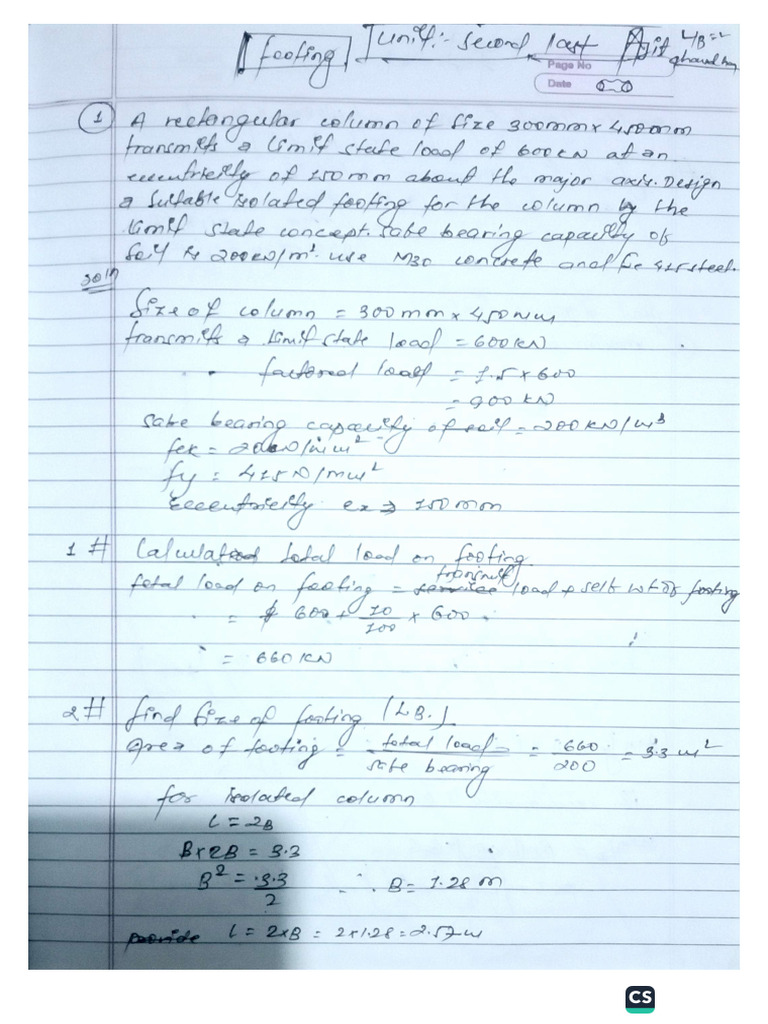 footing unit:- second last Ajit L/B=2
Page No
Date
1 A rectangular column of size 300mm x 450mm
transmits a limit state load of 600KN at an
eccentricity of 150mm about the major axis. Design
a suitable isolated footing for the column by the
limit state concept. safe bearing capacity of
soil is 200KN/m³. use M30 concrete and fe 415 steel.
solⁿ
Size of column = 300mm x 450mm
transmits a limit state load = 600KN
∴ factored load = 1.5 x 600
= 900 KN
safe bearing capacity of soil = 200KN/m³
fck = 20N/mm²
fy = 415N/mm²
Eccentricity ex → 150mm
1 # Calculated total load on footing
total load on footing = transmit load + self wt of footing
= 600 + 10/100 x 600
= 660KN
2 # find size of footing (L B.)
Area of footing = total load / safe bearing = 660/200 = 3.3 m²
for isolated column
L = 2B
B x 2B = 3.3
B² = 3.3/2 ∴ B = 1.28 m
provide L = 2xB = 2x1.28 = 2.57m
CS